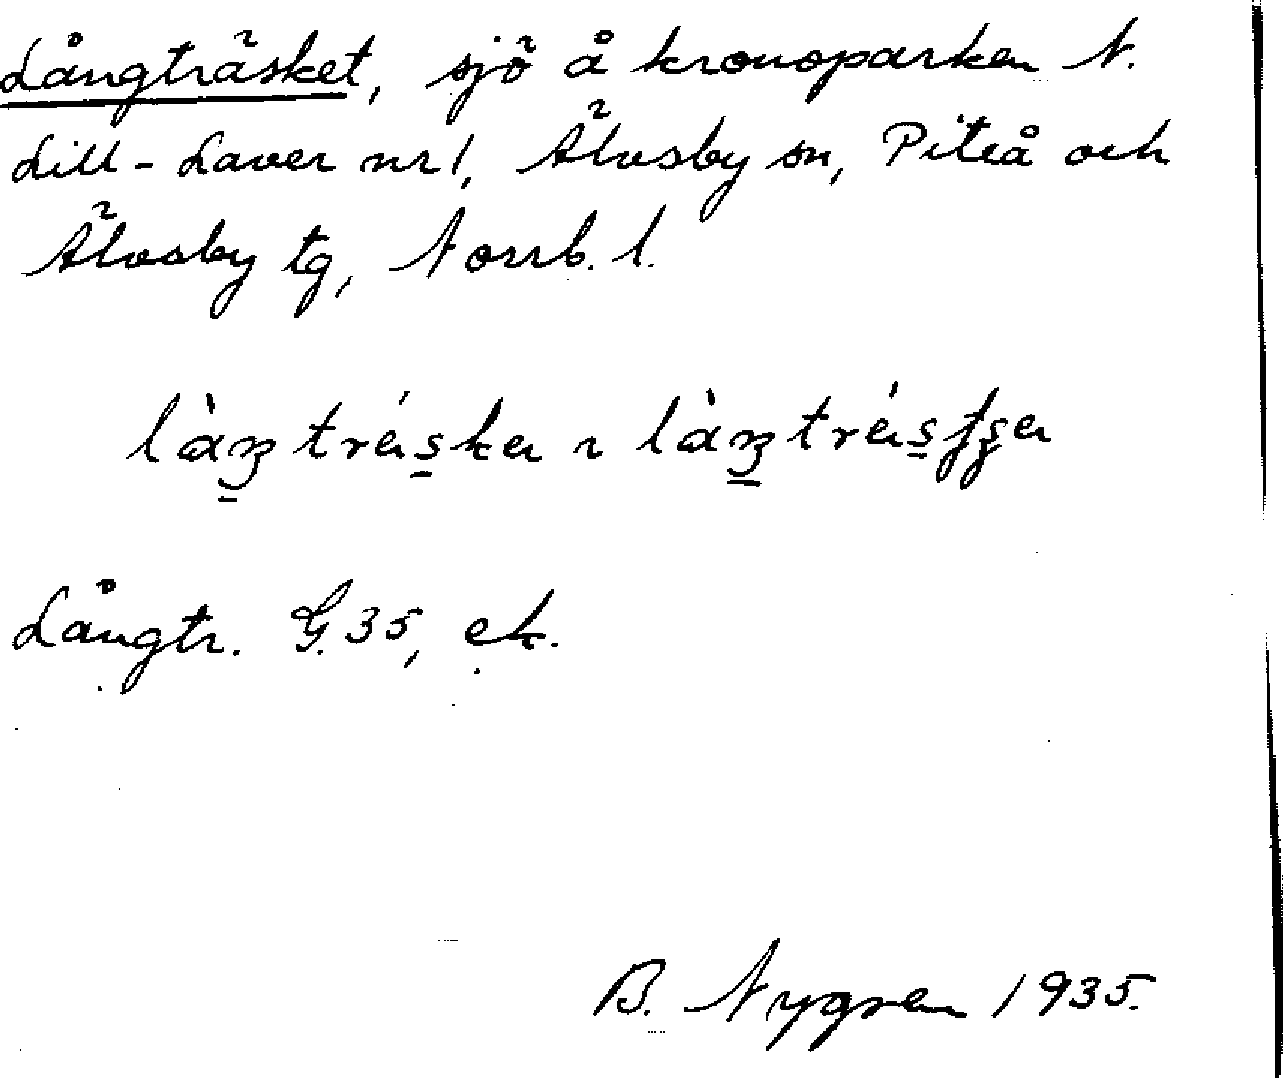 Långträsket, sjö å kronoparken N.
Lill-Laver nr 1, Älvsby sn, Piteå och
Älvsby tg, Norrb. l.
Långtr. G. 35, ek.
B. Nygren 1935.